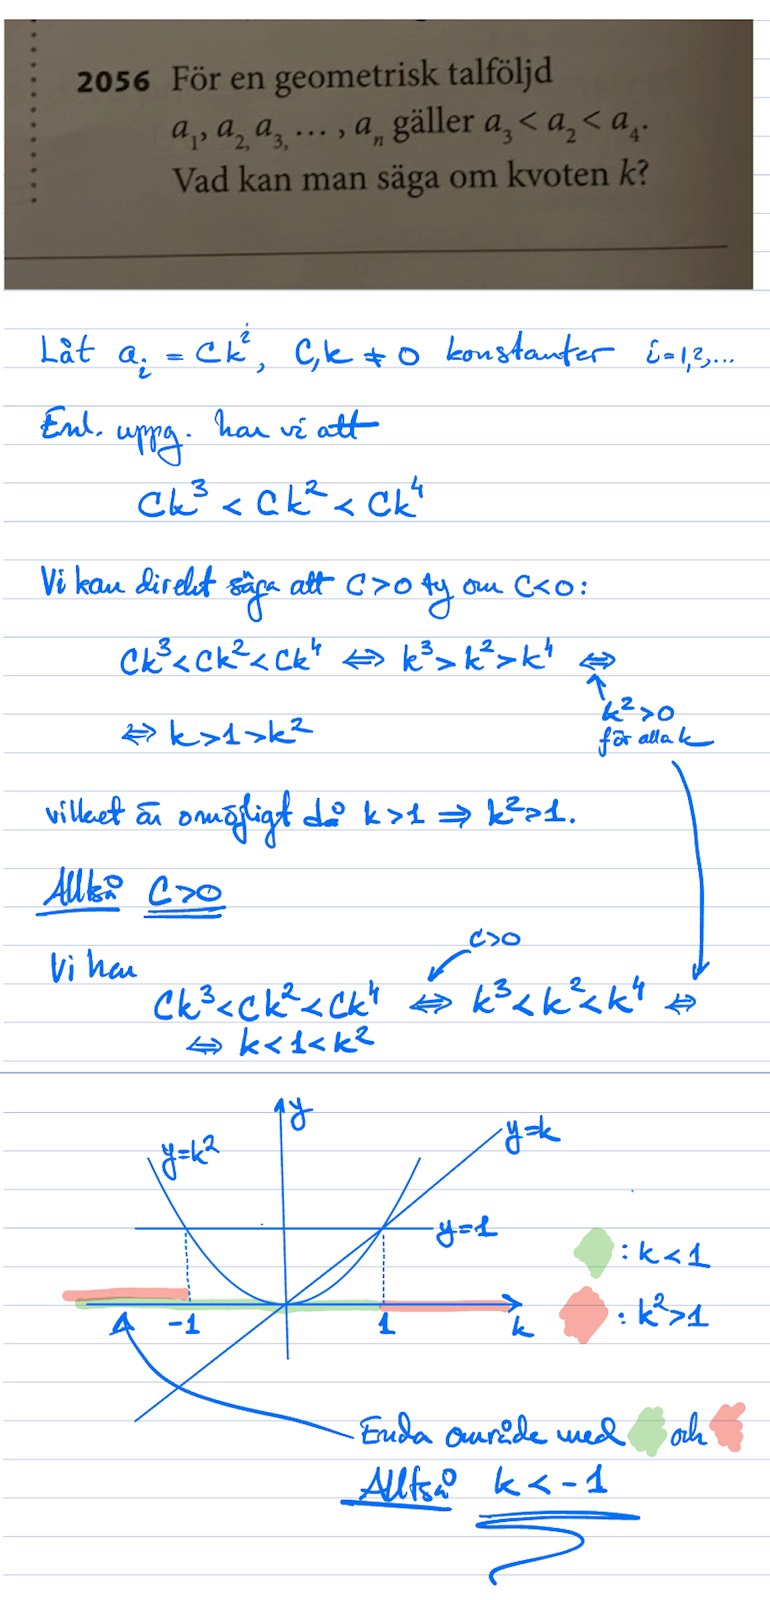 2056 För en geometrisk talföljd
a₁, a₂, a₃, ..., aₙ gäller a₃ < a₂ < a₄.
Vad kan man säga om kvoten k?
Låt aᵢ = Ckⁱ, C,k ≠ 0 konstanter i=1,2,...
Enl. uppg. har vi att
Ck³ < Ck² < Ck⁴
Vi kan direkt säga att C>0 ty om C<0:
Ck³<Ck²<Ck⁴ ⇔ k³>k²>k⁴ ⇔
k²>0
för alla k
⇔ k>1>k²
vilket är omöjligt då k>1 ⇒ k²>1.
Alltså C>0
C>0
Vi har
Ck³<Ck²<Ck⁴ ⇔ k³<k²<k⁴ ⇔
⇔ k<1<k²
y
y=k
y=k²
y=1
: k<1
-1 1 k
: k²>1
Enda område med och
Alltså k<-1